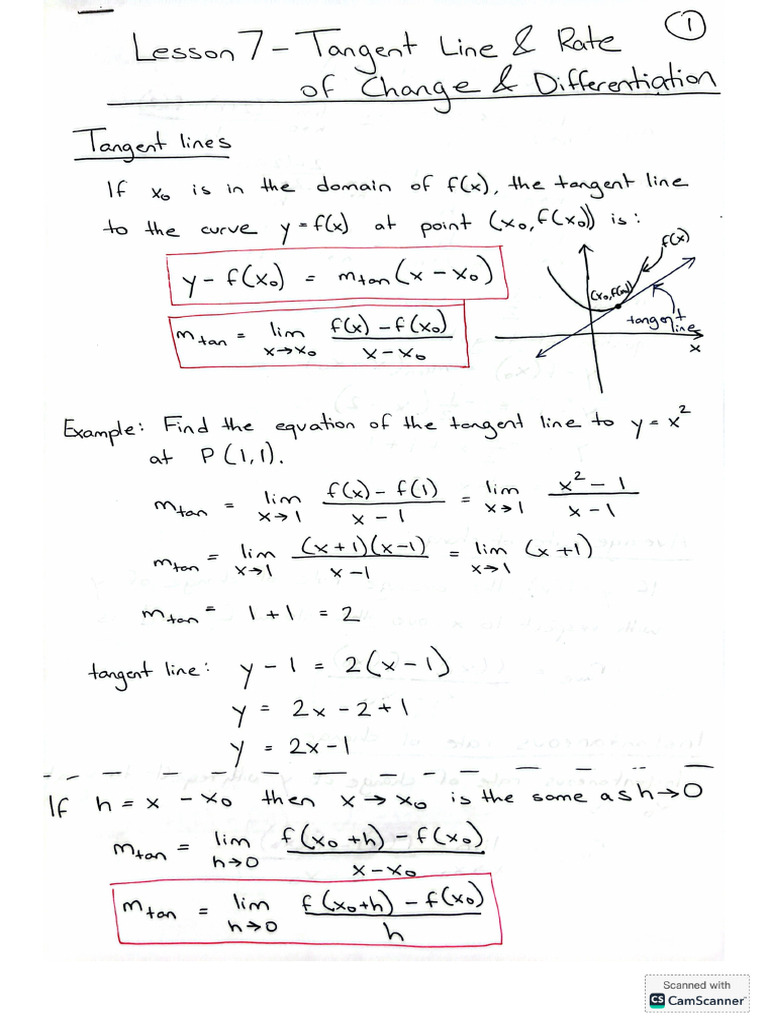 ①
Lesson 7 – Tangent Line & Rate
of Change & Differentiation
Tangent lines
If x₀ is in the domain of f(x), the tangent line
to the curve y = f(x) at point (x₀, f(x₀)) is:
y – f(x₀) = m_tan (x – x₀)
m_tan = lim x→x₀ (f(x) – f(x₀))/(x – x₀)
f(x)
(x₀, f(x₀))
tangent
line
x
Example: Find the equation of the tangent line to y = x²
at P(1,1).
m_tan = lim x→1 (f(x) – f(1))/(x – 1) = lim x→1 (x² – 1)/(x – 1)
m_tan = lim x→1 ((x+1)(x–1))/(x–1) = lim x→1 (x+1)
m_tan = 1 + 1 = 2
tangent line: y – 1 = 2(x – 1)
y = 2x – 2 + 1
y = 2x – 1
If h = x – x₀ then x → x₀ is the same as h → 0
m_tan = lim h→0 (f(x₀ + h) – f(x₀))/(x – x₀)
m_tan = lim h→0 (f(x₀+h) – f(x₀))/h
Scanned with
CS CamScanner